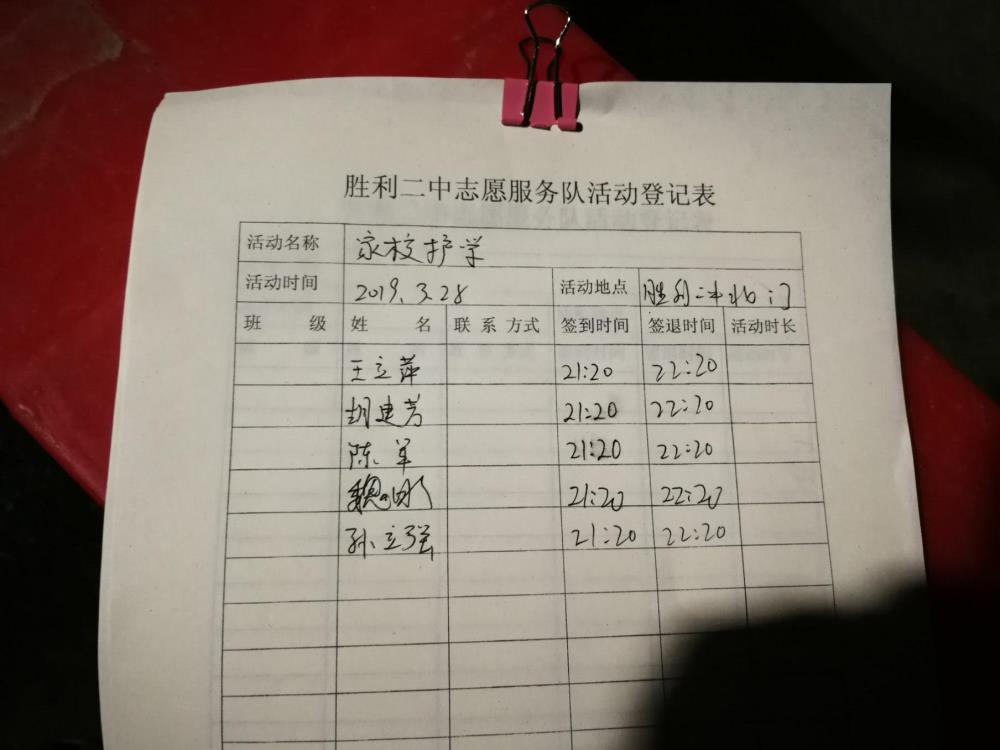 胜利二中志愿服务队活动登记表
活动名称 家校护学
活动时间 2019.3.28 活动地点 胜利二中北门
班 级 姓 名 联 系 方式 签到时间 签退时间 活动时长
王立萍 21:20 22:20
胡建芳 21:20 22:20
陈军 21:20 22:20
魏 21:20 22:20
孙立强 21:20 22:20